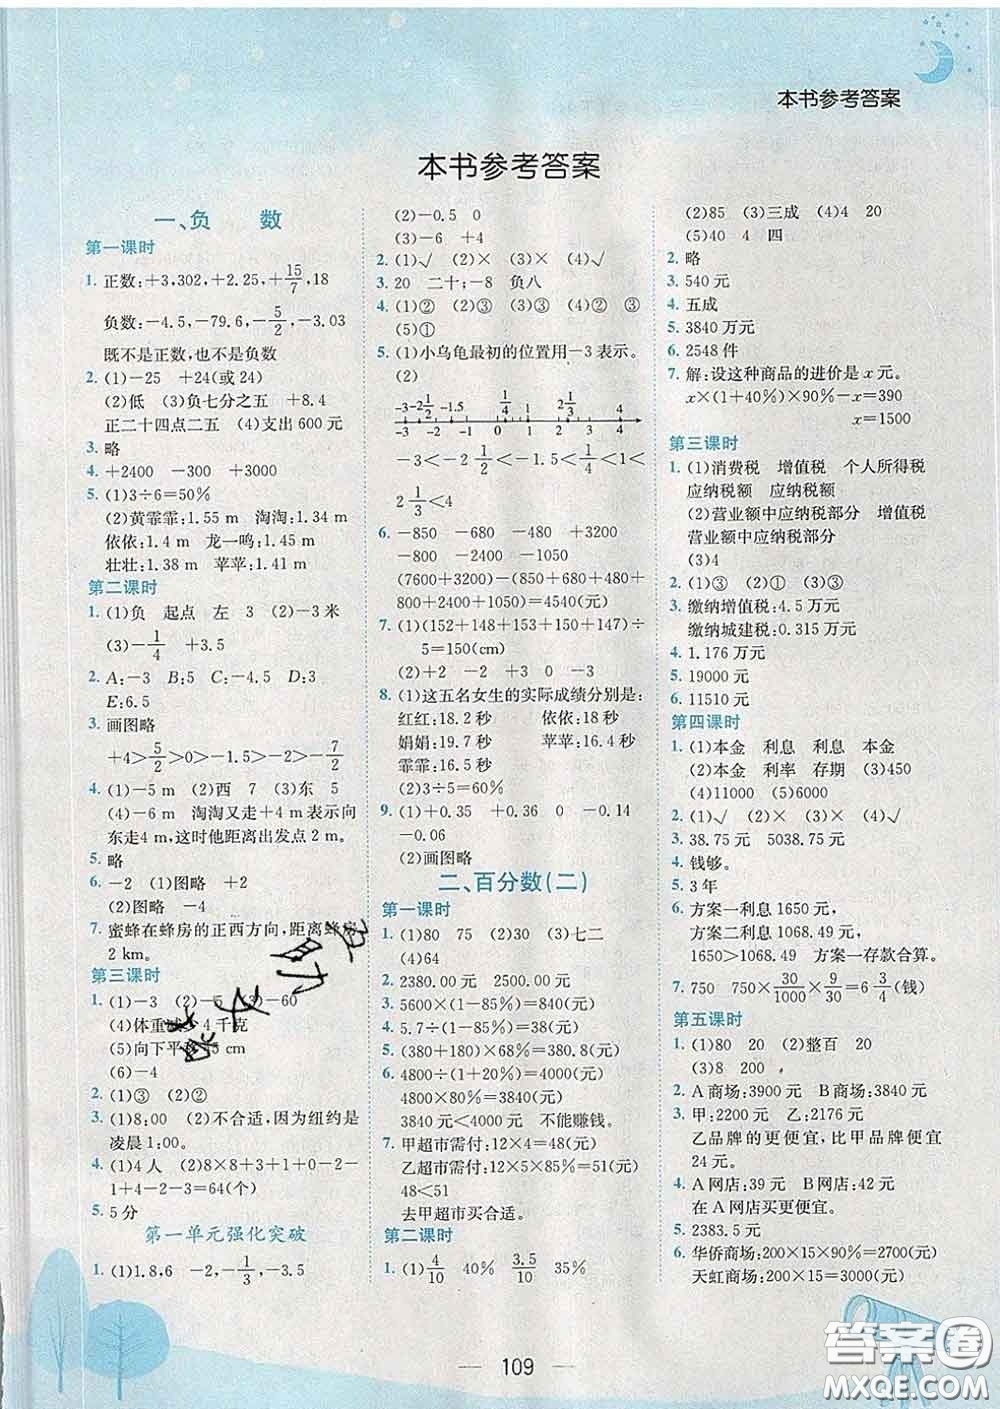 本书参考答案
本书参考答案
一、负 数
第一课时
1. 正数:+3,302,+2.25,+15/7,18
负数:-4.5,-79.6,-5/2,-3.03
既不是正数,也不是负数
2. (1)-25 +24(或24)
(2)低 (3)负七分之五 +8.4
正二十四点二五 (4)支出600元
3. 略
4. +2400 -300 +3000
5. (1)3÷6=50%
(2)黄霏霏:1.55 m 淘淘:1.34 m
依依:1.4 m 龙一鸣:1.45 m
壮壮:1.38 m 苹苹:1.41 m
第二课时
1. (1)负 起点 左 3 (2)-3米
(3)-1/4 +3.5
2. A:-3 B:5 C:-4.5 D:3
E:6.5
3. 画图略
+4>5/2>0>-1.5>-2>-7/2
4. (1)-5 m (2)西 7 (3)东 5
(4)-6 m 淘淘又走+4 m表示向
东走4 m,这时他距离出发点2 m。
5. 略
6. -2 (1)图略 +2
(2)图略 -4
7. 蜜蜂在蜂房的正西方向,距离蜂房
2 km。
第三课时
1. (1)-3 (2)-5 (3)-60
(4)体重减少4千克
(5)向下平移 5 cm
(6)-4
2. (1)③ (2)②
3. (1)8:00 (2)不合适,因为纽约是
凌晨1:00。
4. (1)4人 (2)8×8+3+1+0-2-
1+4-2-3=64(个)
5. 5分
第一单元强化突破
1. (1)1.8,6 -2,-1/3,-3.5
(2)-0.5 0
(3)-6 +4
2. (1)√ (2)× (3)× (4)√
3. 20 二十;-8 负八
4. (1)② (2)③ (3)③ (4)② ③
(5)①
5. (1)小乌龟最初的位置用-3表示。
(2)
-3 -2 1/2 -1.5 1/4 2 1/3 4
-3 -2 -1 0 1 2 3 4
-3<-2 1/2<-1.5<1/4<1<
2 1/3<4
6. -850 -680 -480 +3200
-800 -2400 -1050
(7600+3200)-(850+680+480+
800+2400+1050)=4540(元)
7. (1)(152+148+153+150+147)÷
5=150(cm)
(2)+2 -2 +3 0 -3
8. (1)这五名女生的实际成绩分别是:
红红:18.2秒 依依:18秒
娟娟:19.7秒 苹苹:16.4秒
霏霏:16.9秒
(2)3÷5=60%
9. (1)+0.35 +0.36 0 +0.04
-0.06
(2)画图略
二、百分数(二)
第一课时
1. (1)80 75 (2)30 (3)七二
(4)64
2. 2380.00元 2500.00元
3. 5600×(1-85%)=840(元)
4. 5.7÷(1-85%)=38(元)
5. (380+110)×68%=333.2(元)
6. 4800÷(1+20%)=4000(元)
4800×80%=3840(元)
3840元<4000元 不能赚钱。
7. 甲超市需付:12×4=48(元)
乙超市需付:12×5×85%=51(元)
48<51
去甲超市买合适。
第二课时
1. (1)4/10 40% 3.5/10 35%
(2)85 (3)三成 (4)4 20
(5)40 4 四
2. 略
3. 540元
4. 五成
5. 3840万元
6. 2548件
7. 解:设这种商品的进价是x元。
x×(1+40%)×90%-x=390
x=1500
第三课时
1. (1)消费税 增值税 个人所得税
应纳税额 应纳税额
(2)营业额中应纳税部分 增值税
营业额中应纳税部分
(3)4
2. (1)③ (2)① (3)③
3. 缴纳增值税:4.5万元
缴纳城建税:0.315万元
4. 1.176万元
5. 19000元
6. 11510元
第四课时
1. (1)本金 利息 利息 本金
(2)本金 利率 存期 (3)450
(4)11000 (5)2000
2. (1)√ (2)× (3)× (4)√
3. 38.75元 5038.75元
4. 钱够。
5. 3年
6. 方案一利息1650元,
方案二利息1068.49元
1650>1068.49 方案一存款合算。
7. 750 750×30/1000×9/30=6 3/4(钱)
第五课时
1. (1)80 20 (2)整百 20
(3)8 200
2. A商场:3900元 B商场:3840元
3. 甲:2200元 乙:2176元
乙品牌的更便宜,比甲品牌便宜
24元。
4. A网店:39元 B网店:42元
在A网店买更便宜。
5. 2383.5元
6. 华侨商场:200×15×90%=2700(元)
天虹商场:200×15=3000(元)
109
答案圈
MXQE.COM